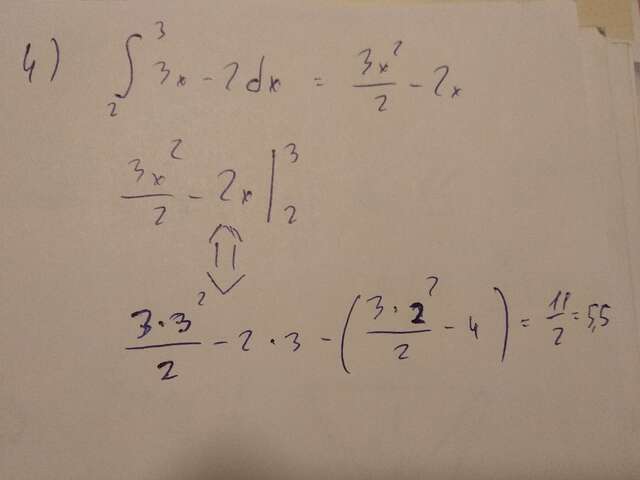 4) ∫₂³ 3x - 2 dx = 3x²/2 - 2x
3x²/2 - 2x |₂³
⇕
3·3²/2 - 2·3 - (3·2²/2 - 4) = 11/2 = 5,5